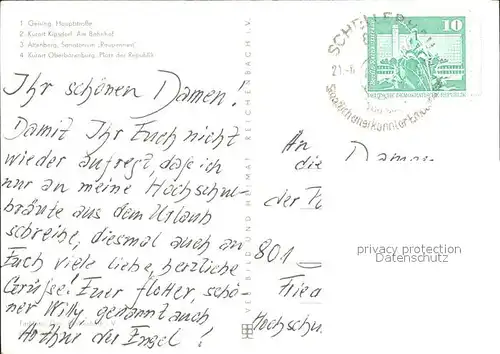 1 Geising, Hauptstraße
2 Kurort Kipsdorf, Am Bahnhof
3 Altenberg, Sanatorium „Raupennest“
4 Kurort Oberbärenburg, Platz der Republik
Ihr schönen Damen!
Damit Ihr Euch nicht
wieder aufregt, daß ich
nur an meine Hochschul-
bräute aus dem Urlaub
schreibe, diesmal auch an
Euch viele liebe, herzliche
Grüße! Euer flotter, schö-
ner Willy, genannt auch
Arthur der Engel!
VERLAG BILD UND HEIMAT REICHENBACH I. V.
SCHELLERHAU
21.-6
10
DEUTSCHE DEMOKRATISCHE REPUBLIK
An
die Damen
der
801
Hochschu
privacy protection
Datenschutz